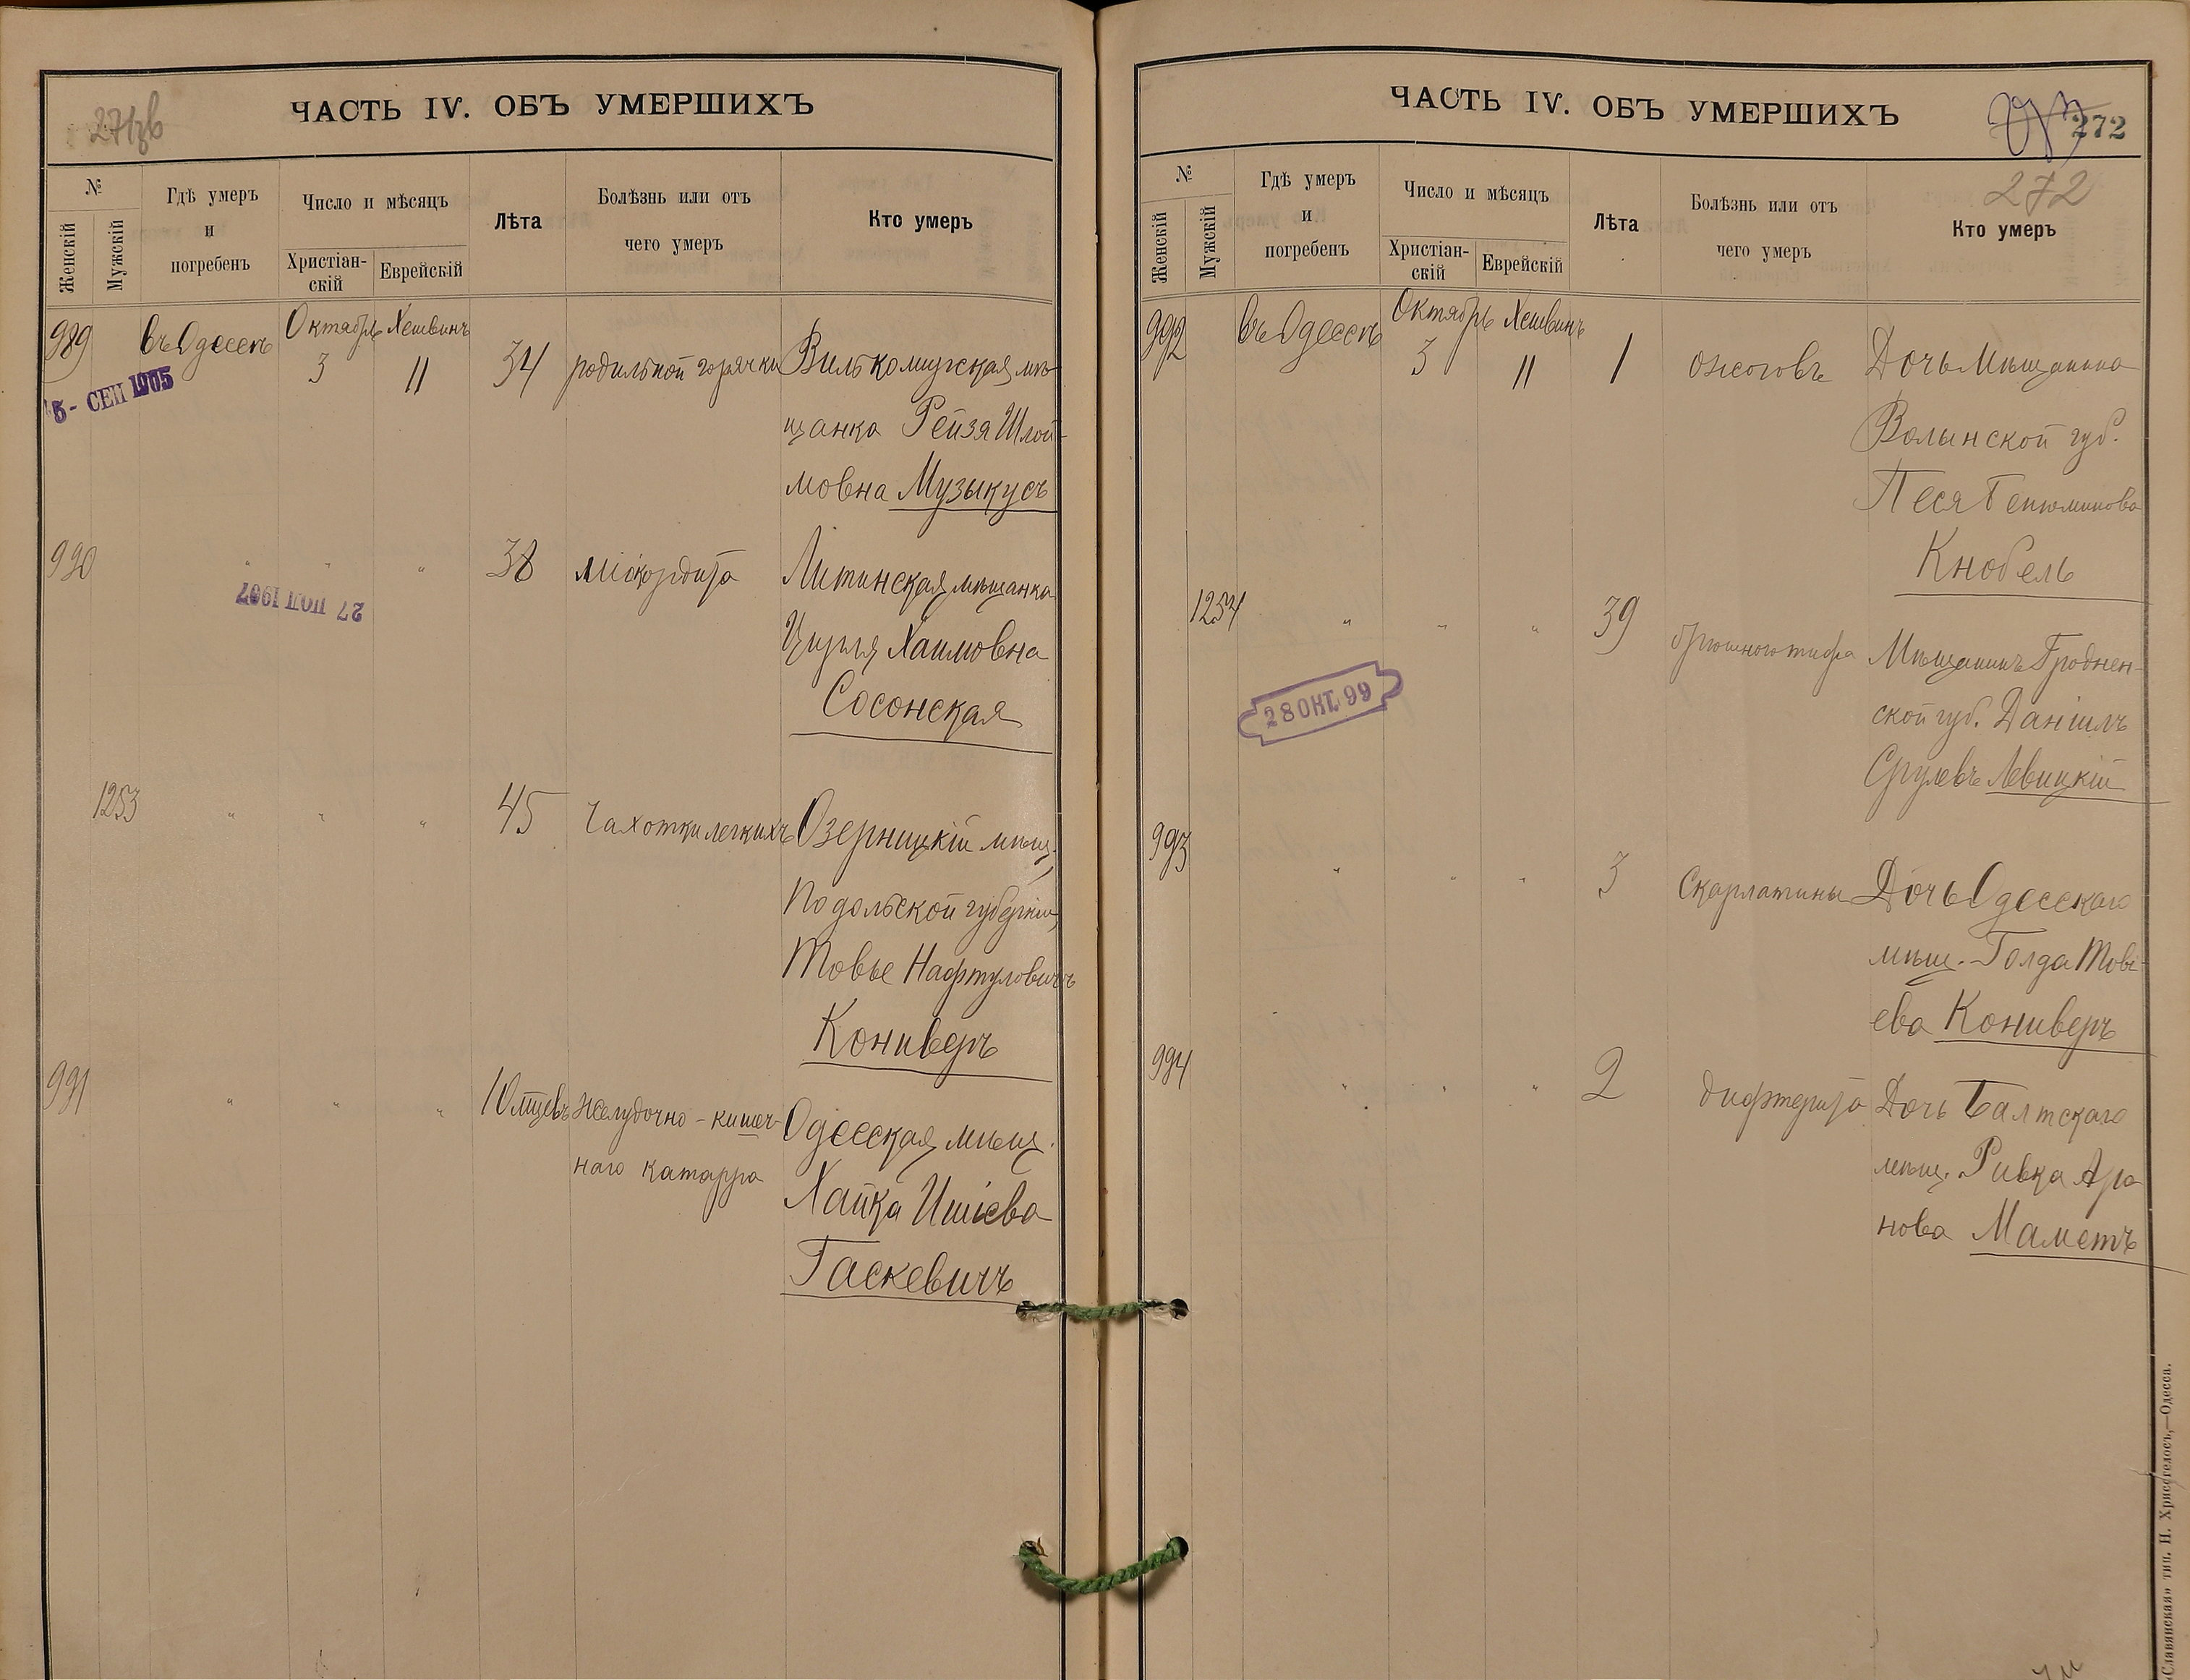 271об
ЧАСТЬ IV. ОБЪ УМЕРШИХЪ
№
Женскій
Мужскій
Гдѣ умеръ
и
погребенъ
Число и мѣсяцъ
Христіан-
скій
Еврейскій
Лѣта
Болѣзнь или отъ
чего умеръ
Кто умеръ
989 въ Одессѣ Октябрь Хешвинъ
3 11 34 родильной горячки Вилькомирская мѣ-
5 - СЕН 1905
щанка Рейзя Шлой-
мовна Музыкусъ
990 " " " 38 міокардита Литинская мѣщанка
27 ІЮЛ 1907
Цирля Хаимовна
Сосонская
1253 " " " 45 Чахотки легкихъ Озерницкій мѣщ.
Подольской губерніи,
Товье Нафтуловичъ
Кониверъ
991 " " " 10 мцевъ Желудочно-кишеч-
наго катарра
Одесская мѣщ.
Хайка Ишіева
Гаскевичъ
ЧАСТЬ IV. ОБЪ УМЕРШИХЪ
272
272
№
Женскій
Мужскій
Гдѣ умеръ
и
погребенъ
Число и мѣсяцъ
Христіан-
скій
Еврейскій
Лѣта
Болѣзнь или отъ
чего умеръ
Кто умеръ
992 въ Одессѣ Октябрь Хешвинъ
3 11 1 ожоговъ Дочь Мѣщанина
Волынской губ.
Песя Бенюминова
Кнобель
1254 " " " 39 брюшного тифа Мѣщанинъ Гроднен-
ской губ. Даніилъ
28 ОКТ. 99
Срулевъ Левицкій
993 " " " 3 Скарлатины Дочь Одесскаго
мѣщ. Голда Тові-
ева Кониверъ
994 " " " 2 дифтерита Дочь Балтскаго
мѣщ. Ривка Аро
нова Маметъ
«Славянская» тип. Н. Хрисогелосъ,—Одесса.